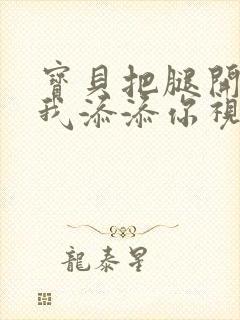 寶貝把腿開
我添添你視
龍泰星